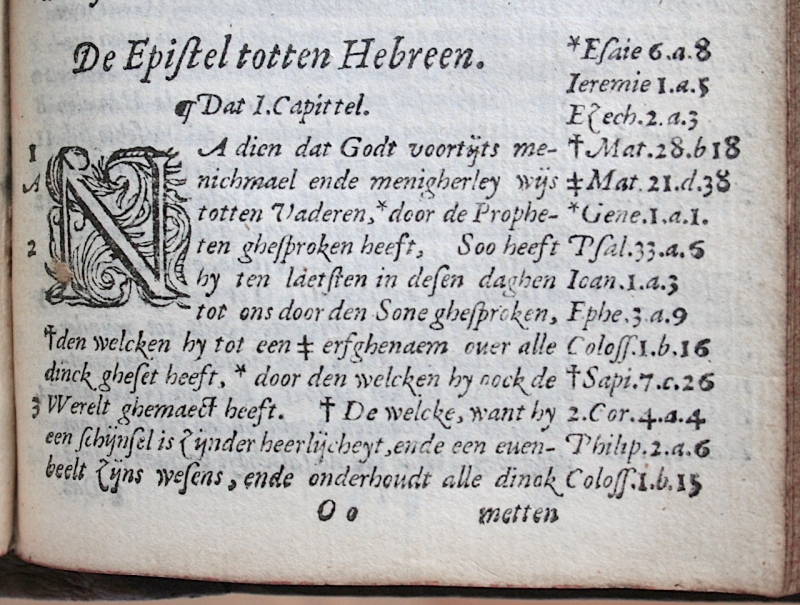 De Epiſtel totten Hebreen.
¶ Dat I. Capittel.
1
A
NA dien dat Godt voortijts me-
nichmael ende menigherley wijs
totten Vaderen,* door de Prophe-
2 ten gheſproken heeft, Soo heeft
hy ten laetſten in deſen daghen
tot ons door den Sone gheſproken,
†den welcken hy tot een ‡ erfghenaem ouer alle
dinck gheſet heeft, * door den welcken hy oock de
3 Werelt ghemaect heeft. † De welcke, want hy
een ſchijnſel is zijnder heerlijcheyt, ende een euen-
beelt zijns weſens, ende onderhoudt alle dinck
O o metten
*Eſaie 6.a.8
Ieremie 1.a.5
Ezech.2.a.3
†Mat.28.b18
‡Mat.21.d.38
*Gene.1.a.1.
Pſal.33.a.6
Ioan.1.a.3
Ephe.3.a.9
Coloſſ.1.b.16
†Sapi.7.c.26
2.Cor.4.a.4
Philip.2.a.6
Coloſſ.1.b.15